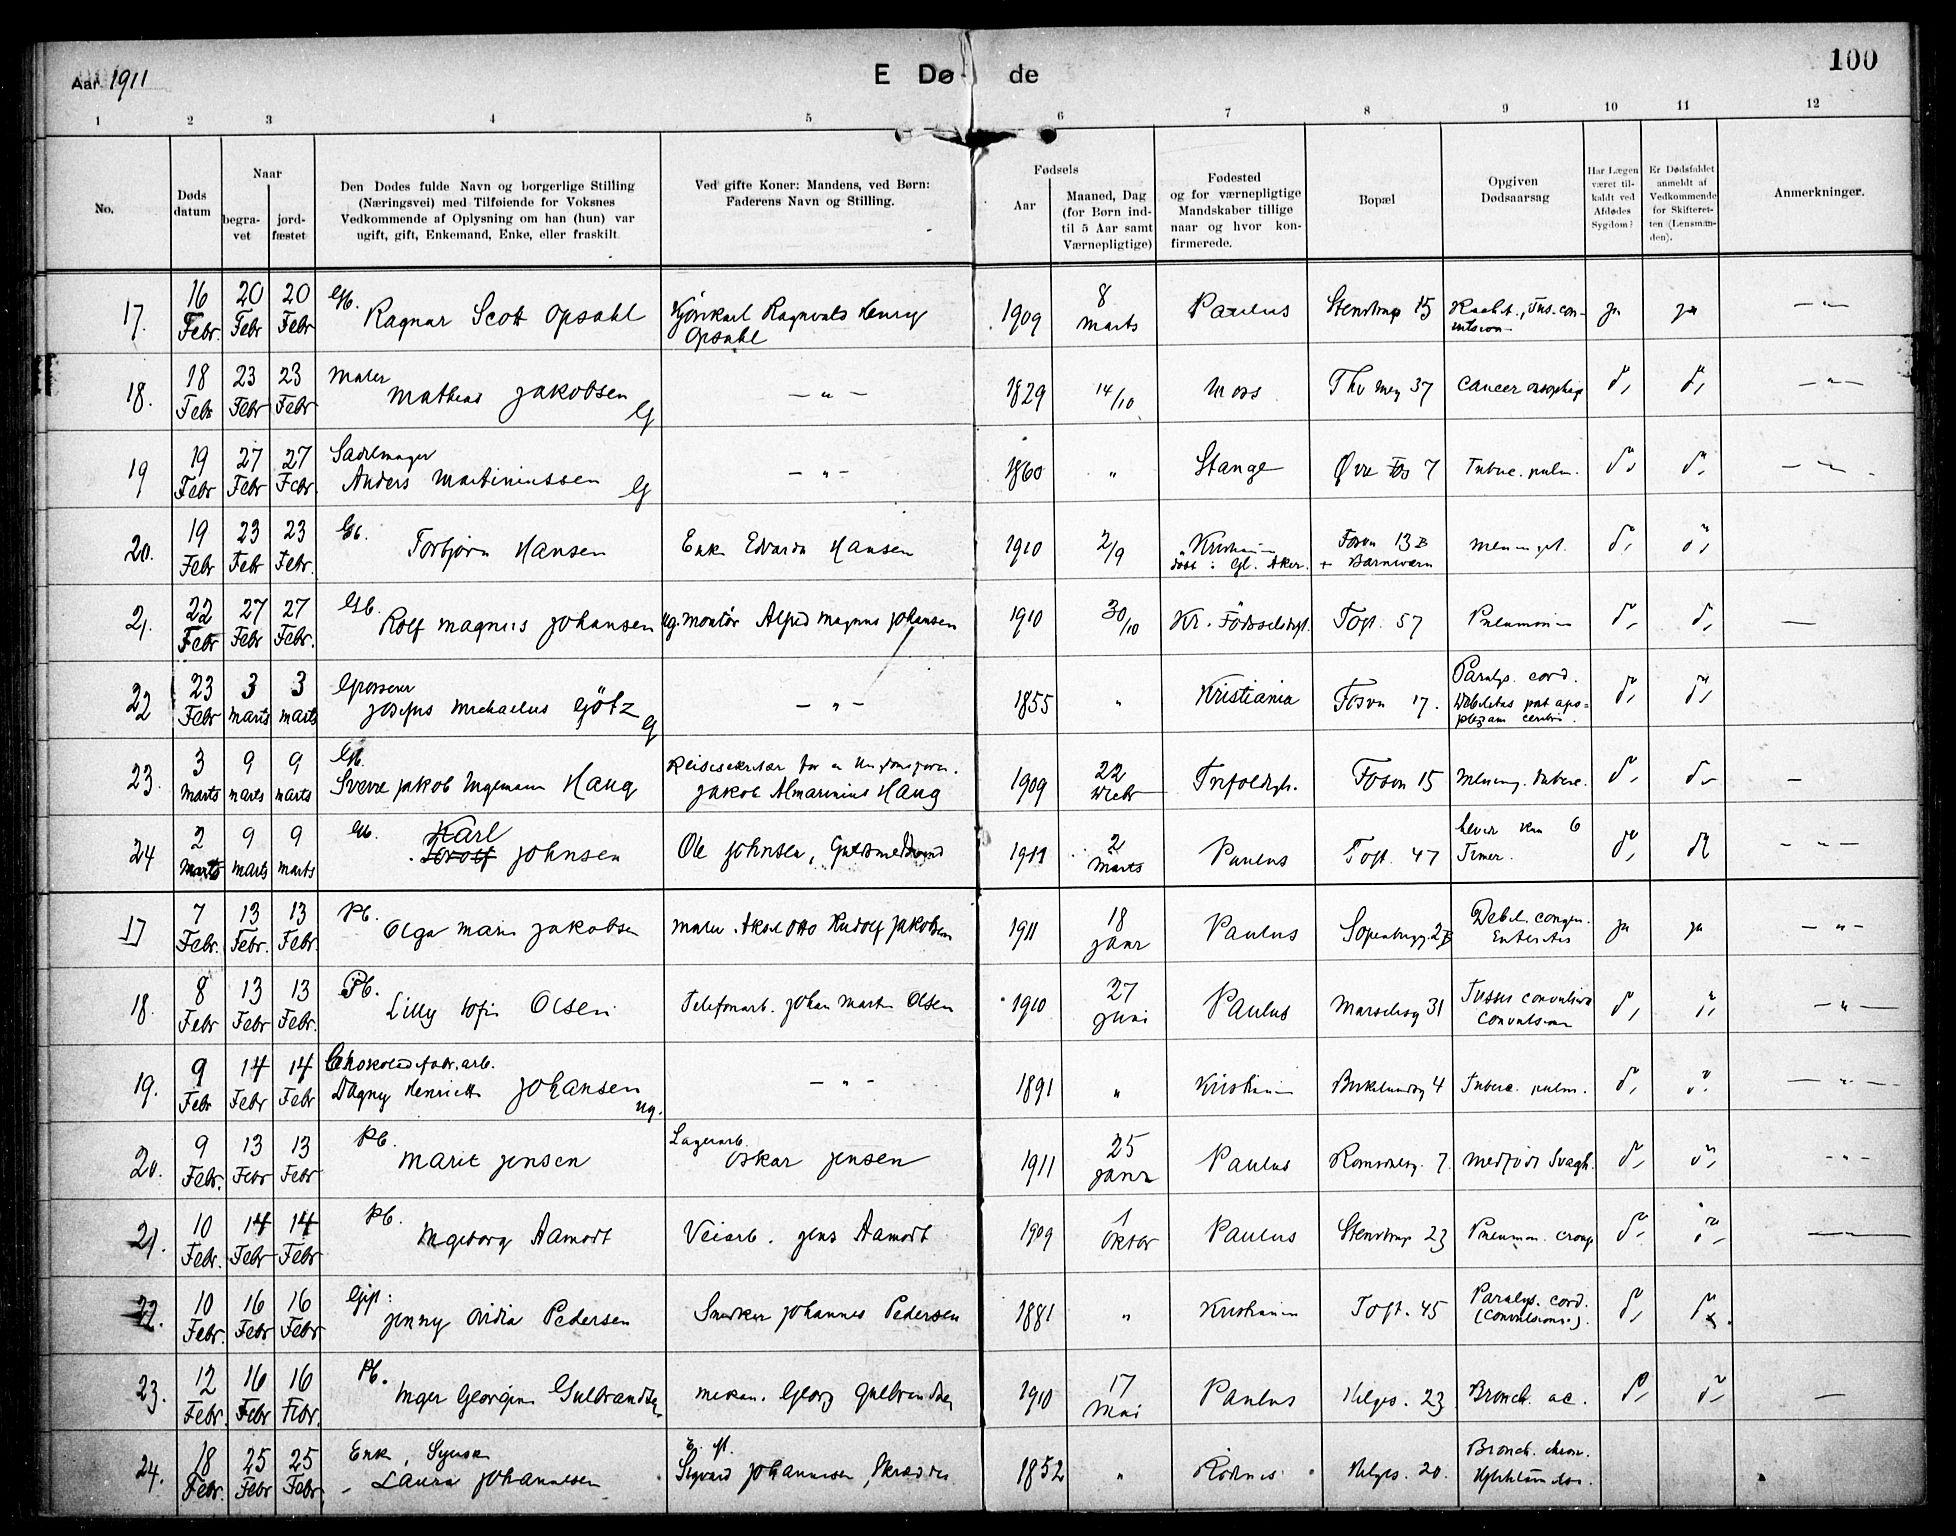 Aar 1911
E Dø de
100
1 2 3 4 5 6 7 8 9 10 11 12
No.
Døds datum
Naar
begra- vet
jord- fæstet
Den Dødes fulde Navn og borgerlige Stilling
(Næringsvei) med Tilføiende for Voksnes
Vedkommende af Oplysning om han (hun) var
ugift, gift, Enkemand, Enke, eller fraskilt
Ved gifte Koner: Mandens, ved Børn:
Faderens Navn og Stilling.
Fødsels
Aar
Maaned, Dag
(for Børn ind-
til 5 Aar samt
Værnepligtige)
Fødested
og for værnepligtige
Mandskaber tillige
naar og hvor kon-
firmerede.
Bopæl
Opgiven
Dødsaarsag
Har Lægen
været til-
kaldt ved
Afdødes
Sygdom?
Er Dødsfaldet
anmeldt af
Vedkommende
for Skifteret-
ten (Lensman-
den).
Anmerkninger.
17. 16 Febr. 20 Febr 20 Febr Gb. Ragnar Scott Opsahl Henry Opsahl 1909 8 Marts Paulus Stenstrup 15 ja ja — " —
18. 18 Febr 23 Febr 23 Febr Maler Mathias Jakobsen G — " — 1829 14/10 Moss Thv. Mey 37 Cancer do, do, — " —
19 19 Febr 27 Febr 27 Febr. Sadelmager Anders Martiniussen G — " — 1860 " Stange Øvre Fos 7 Tuberc. pulm. do, do, — " —
20. 19 Febr 23 Febr 23 Febr. Gb. Torbjørn Hansen Enke Edvarda Hansen 1910 2/9 Kristiania døbt : Gl. Aker. Fosvn 13 B + Barneværn do, do,
21. 22 Febr 27 Febr 27 Febr. Gb. Rolf Magnus Johansen ug. Montør Alfred Magnus Johansen 1910 30/10 Kr. Fødselsst. Toft. 57 Pneumoni do, do, —
22 23 Febr 3 Marts 3 Marts Grosserer Josefus Michaelus Götz G — " — 1855 " Kristiania Fosvn 17. Paralys. cord. Debilitas post apo= plexiam cerebri. do, do,
23. 3 Marts 9 Marts 9 Marts Gb. Sverre Jakob Ingemann Haug Reisesekretær for Jakob Almarinius Haug 1909 22 Decbr Trefoldigh. Fosvn 15 Mening. tuberc. do, do, —
24 2 Marts 9 Marts 9 Marts Gb. Karl Johnsen Ole Johnsen, Guldsmedsvend 1911 2 Marts Paulus Toft. 47 Levet kun 6 Timer. do, do, — " —
17 7 Febr. 13 Febr. 13 Febr. Pb. Olga Marie Jakobsen Maler Aksel Otto Rudolf Jakobsen 1911 18 Janr Paulus Sofienbergg. 2B Debil. congen. Enteritis ja ja — " —
18. 8 Febr 13 Febr 13 Febr. Pb. Lilly Sofie Olsen Telefonarb. Johan Martin Olsen 1910 27 Juni Paulus Marselisg 31 Tussis convulsiva Convulsion do, do, — " —
19. 9 Febr 14 Febr 14 Febr Chokoladefabr.arb. Dagny Henriette Johansen ug. — " — 1891 " Kristiania Birkelundsg 4 Tuberc. pulm. do, do, — " —
20. 9 Febr. 13 Febr 13 Febr Pb. Marie Jensen Lagerarb. Oskar Jensen 1911 25 Janr Paulus Romsdalsg. 7. Medfødt Svagh. do, do, - " -
21. 10 Febr. 14 Febr 14 Febr Pb. Ingeborg Aamodt Veiarb. Jens Aamodt 1909 1 Oktbr Paulus Stenstrup 23 Pneumon. croup do, do, —
22. 10 Febr. 16 Febr 16 Febr Gift: Jenny Ovidia Pedersen Snedker Johannes Pedersen 1881 " Kristiania Toft. 45 Paralys. cord. (Convulsions.). do, do,
23. 12 Febr. 16 Febr 16 Febr. Pb. Inger Georgine Gulbrandsen Mekan. Georg Gulbrandsen 1910 17 Mai Paulus Helges. 23 Bronch. ac. do, do, —
24. 18 Febr. 25 Febr 25 Febr. Enke, Syerske Laura Johannesen E. ef. Sigvard Johannesen, Skrædder 1852 " Rødnes Helges. 20. Bronch. chron.